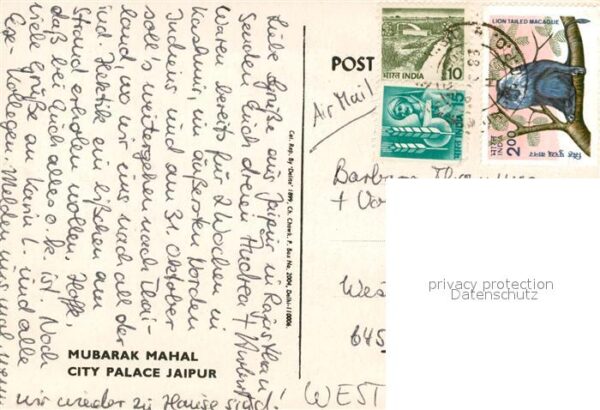 Liebe Grüße aus Jaipur in Rajasthan
Senden Euch dreien Andrea +
Waren bereits für 2 Wochen in
Kashmir, im äußersten Norden
Indiens und am 31. Oktober
soll's weitergehen nach Thai-
land, wo wir uns nach all der
ind. Hektik ein bißchen am
Strand erholen wollen. Hoffe,
daß bei Euch alles o.k. ist. Noch
viele Grüße an Karin L. und alle
Ex-Kollegen. Melden uns mal, wenn
wir wieder zu Hause sind!
MUBARAK MAHAL
CITY PALACE JAIPUR
Col. Rep. By 'Delite' 1899, Ch. Chowk, P. Box No. 2004, Delhi-110006.
POST
Air Mail
भारत INDIA
10
भारत INDIA
LION TAILED MACAQUE
भारत INDIA
2.00
Barbara
West
645
WEST
privacy protection
Datenschutz